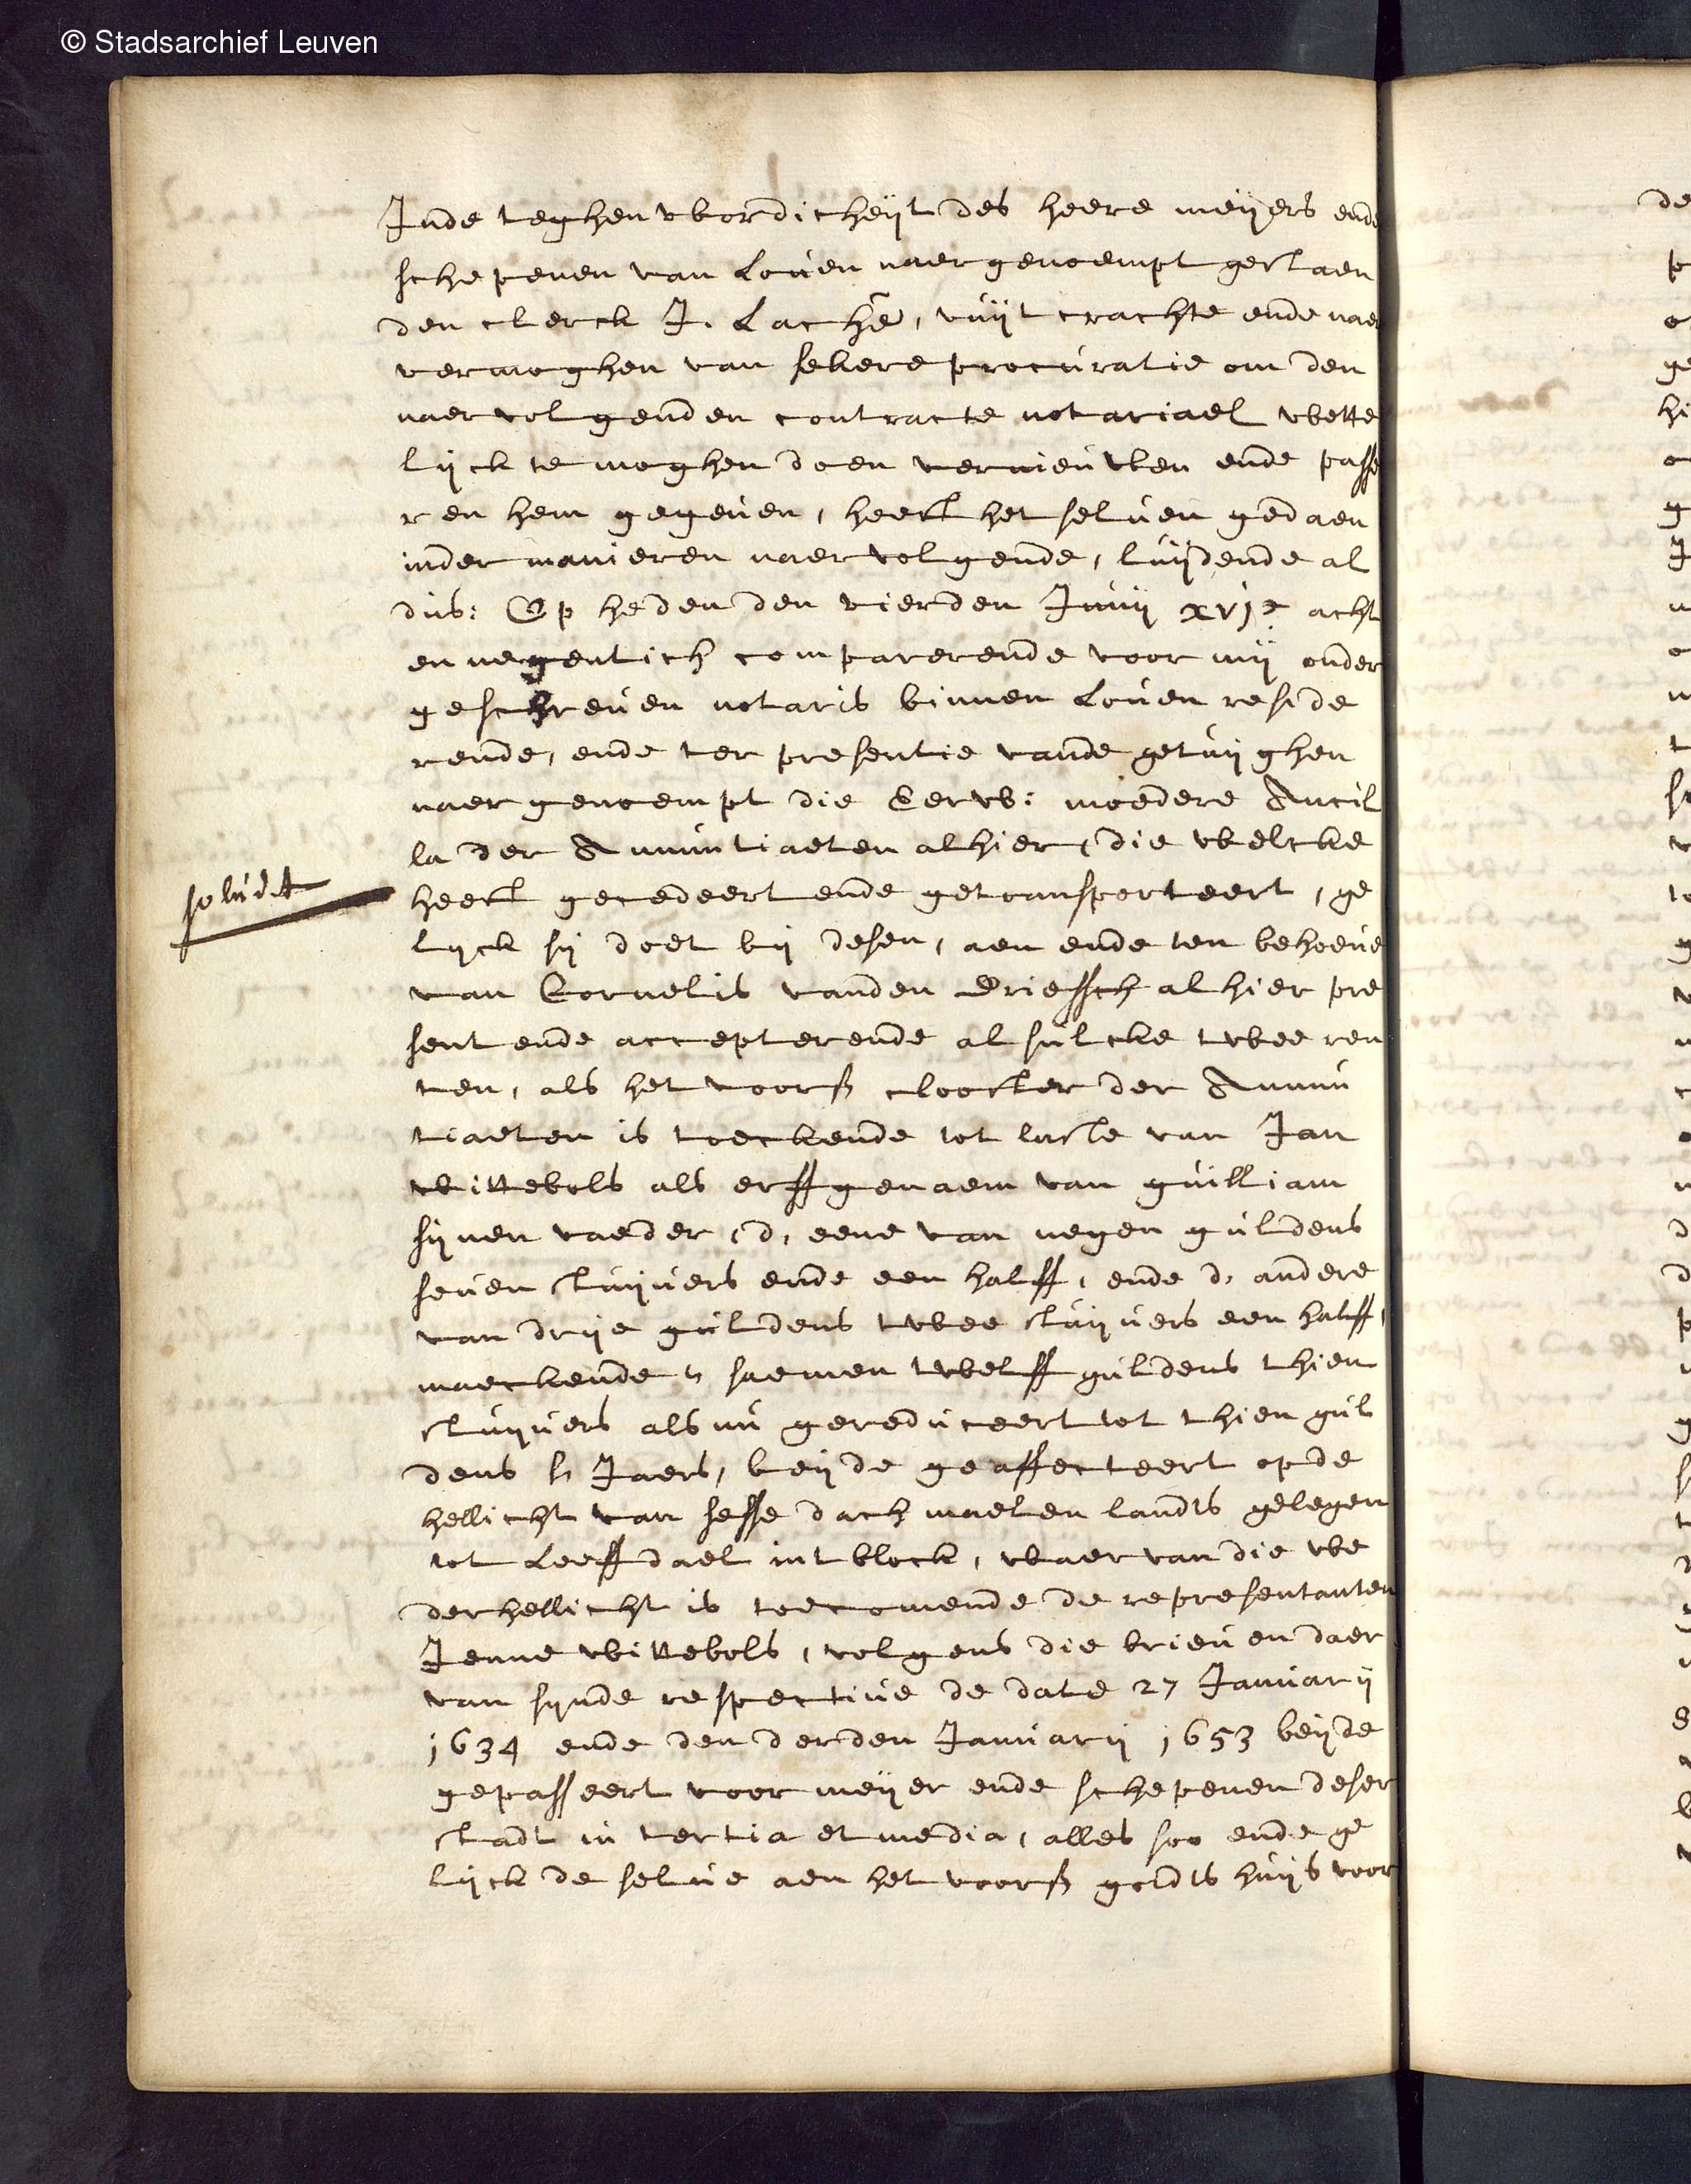 © Stadsarchief Leuven
Inde teghenwoordicheijt des heere meijers ende
schepenen van Loven naergenoempt gestaen
den clerck J. Lache, vuijt crachte ende naer
vermoghen van sekere procuratie om den
naervolgenden contracte notariael wette
lijck te moghen doen vernieuwen ende passe
ren hem gegeven, heeft het selven gedaen
inder manieren naervolgende, luijdende al
dus: Op heden den vierden Junij xvjc acht
en negentich comparerende voor mij onder
geschreven notaris binnen Loven reside
rende, ende ter presentie vande getuijghen
naergenoempt die Eerw: moedere Ancil
la der Annuntiaeten alhier, die welcke
solvdt
heeft gecedeert ende getransporteert, ge
lijck sij doet bij desen, aen ende ten behoeve
van Cornelis vanden Driessch alhier pre
sent ende accepterende alsulcke twee ren
ten, als het voors clooster der Annun
tiaeten is treckende tot laste van Jan
Wittebols als erffgenaem van guilliam
sijnen vaeder, d, eene van negen guldens
seven stuijvers ende een halff, ende d, andere
van drije guldens twee stuijvers een halff,
maeckende 's saemen twelff guldens thien
stuijvers als nu gereduceert tot thien gul
dens 's Jaers, beijde geaffecteert op de
hellicht van sesse dachmaelen landts gelegen
tot Leeffdael int block, waer van die we
derhellicht is toecomende de representanten
Jenne Wittebols, volgens die brieven daer
van sijnde respective de date 27 Januarij
1634 ende den derden Januarij 1653 beijde
gepasseert voor meijer ende schepenen deser
stadt in tertia et media, alles soo ende ge
lijck de selve aen het voors godts huijs voor